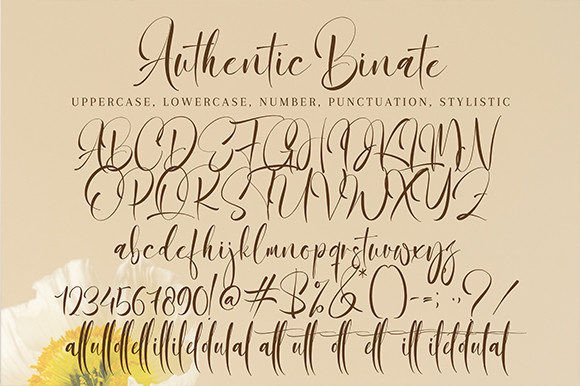 Authentic Binate
UPPERCASE, LOWERCASE, NUMBER, PUNCTUATION, STYLISTIC
ABCDEFGHIJKLMN
OPQRSTUVWXYZ
abcdefhijklmnopqrstuvwxyz
1234567890!@#$%&*()-=;.,?/
all ull dl ell ill